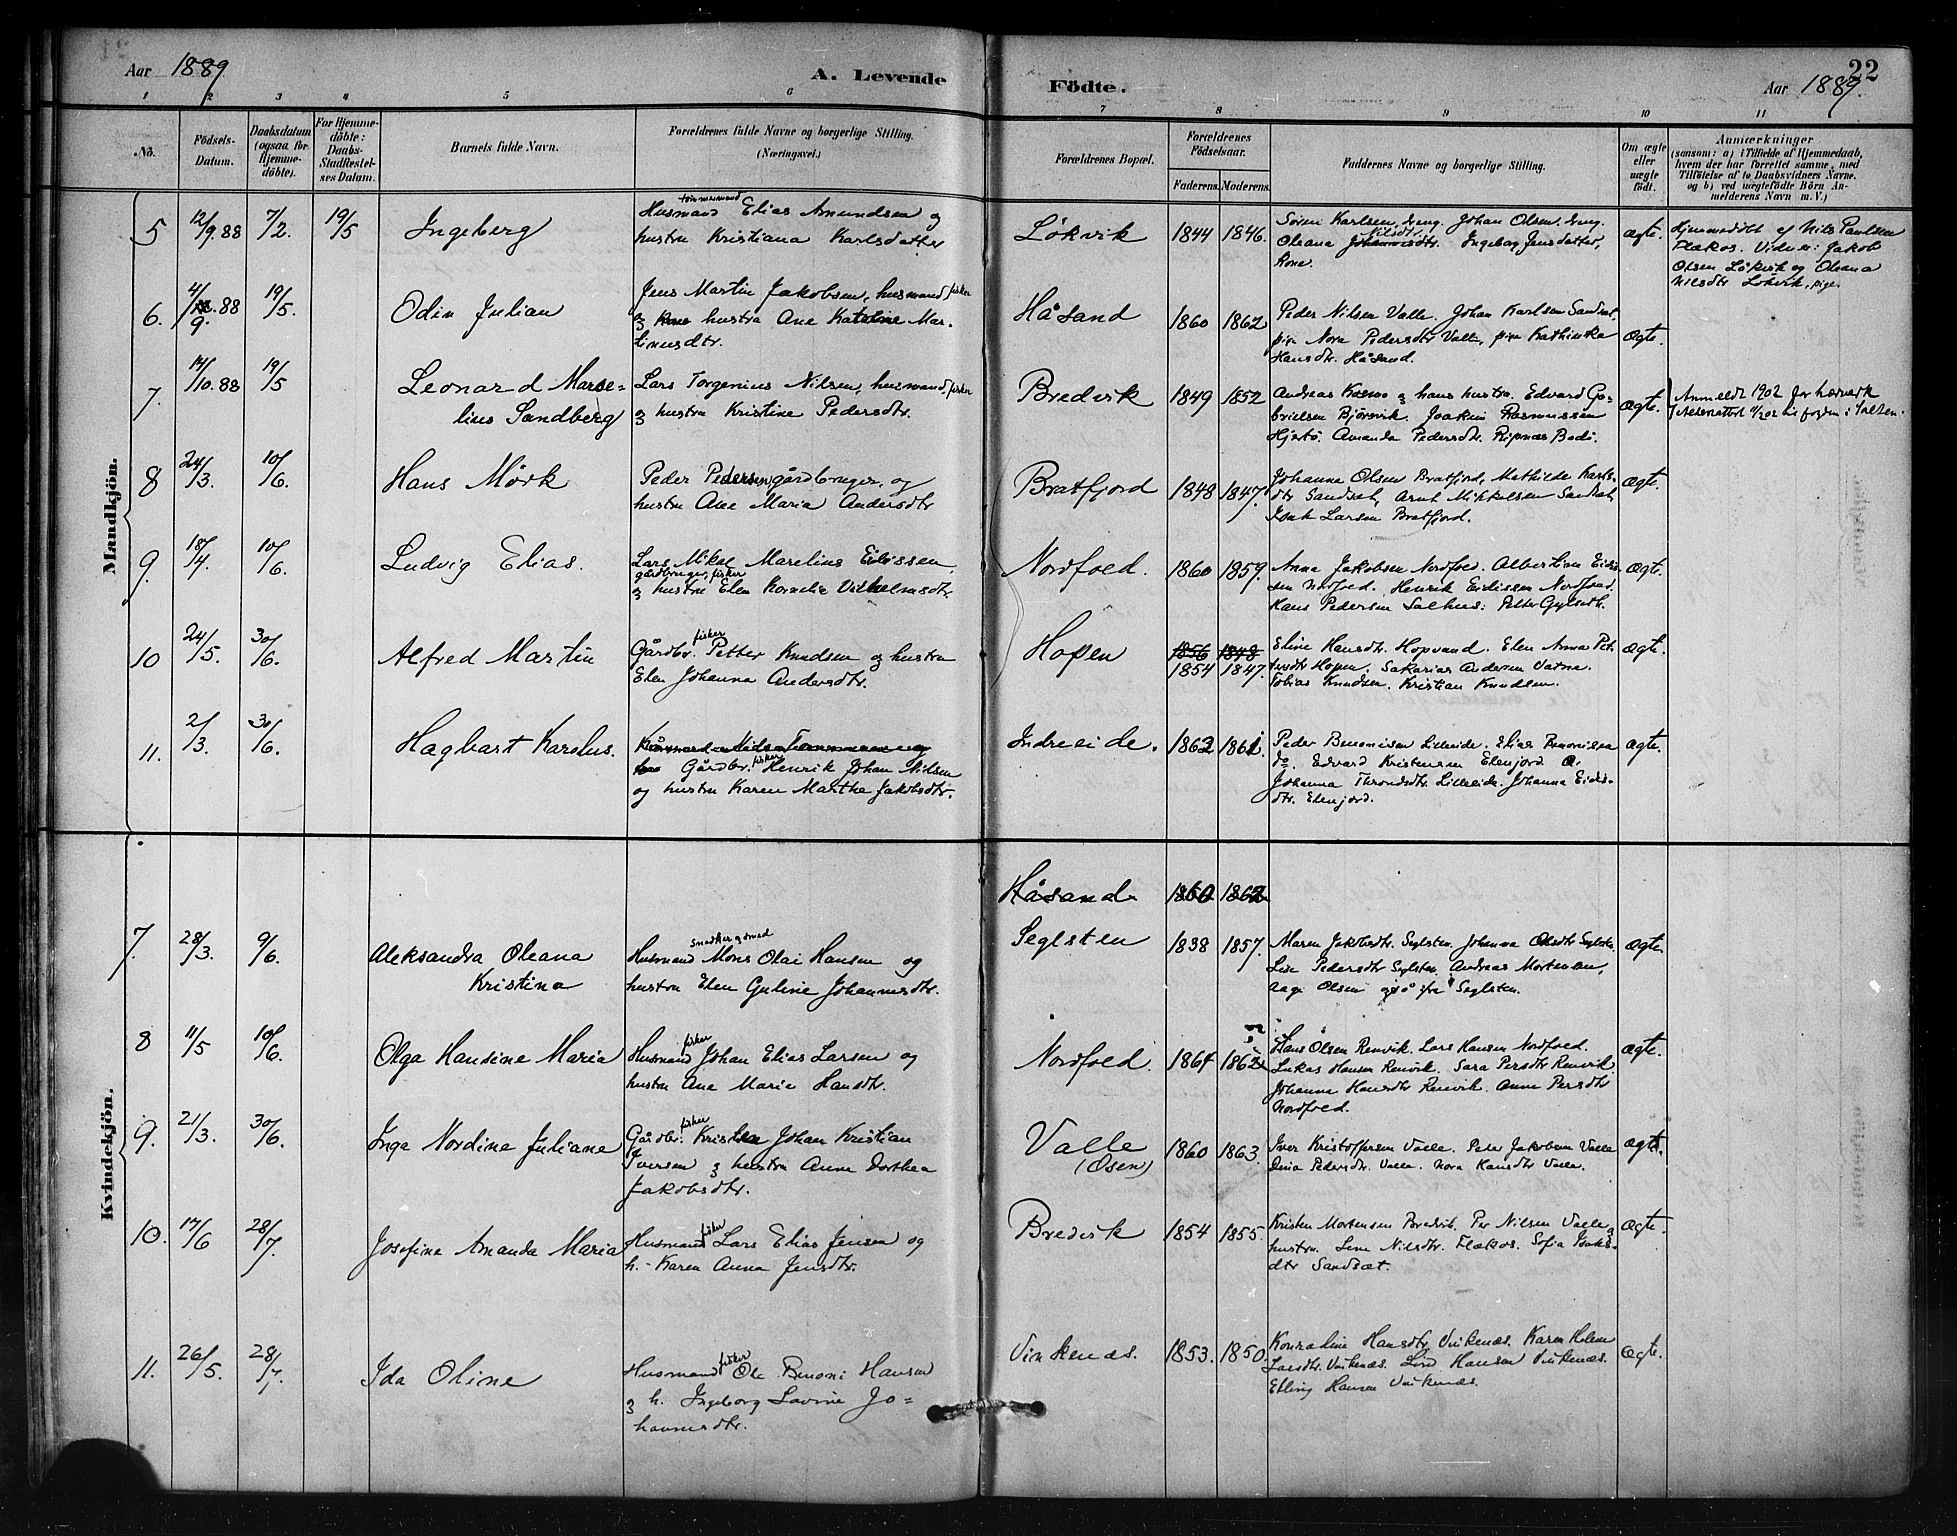 Aar 1889
A. Levende
Födte.
Aar 1889.
22
1 2 3 4 5 6 7 8 9 10 11
No.
Födsels-
Datum.
Daabsdatum
(ogsaa for
Hjemme-
döbte).
For Hjemme-
döbte:
Daabs-
Stadfæstel-
ses Datum.
Barnets fulde Navn.
Forældrenes fulde Navne og borgerlige Stilling.
(Næringsvei.)
Forældrenes Bopæl.
Forældrenes
Födselsaar.
Faderens. Moderens.
Faddernes Navne og borgerlige Stilling.
Om ægte
eller
uægte
födt.
Anmærkninger
(saasom: a) i Tilfælde af Hjemmedaab,
hvem der har forrettet samme, med
Tilföielse af to Daabsvidners Navne.
og b) ved uægtefödte Börn An-
melderens Navn m. V.)
Mandkjön.
5 12/9.88 7/2. 19/5 Ingeberg
tömmermand
Husmand Elias Amundsen og
hustru Kristiana Karlsdatter
Lökvik 1844 1846.
Sören Karlsen, dreng. Johan Olsen, dreng.
Nilsdtr.
Oleana Johannesdtr. Ingebog Jensdatter,
Kone.
Ægte.
Hjemmedöbt af Nils Paulsen
Flækos. Vidner: Jakob
Olsen Lökvik og Oleana
Nilsdtr Lökvik, pige.
6. 4/9.88 19/5. Odin Julian
Jens Martin Jakobsen, husmand, fisker
og hustru Ane Katrine Mar-
tinusdtr.
Håsand 1860 1862
Peder Nilsen Valle. Johan Karlsen Sandsæt,
pige Nora Pedersdtr Valle, pige Kathinka
Hansdtr. Håsand.
Ægte.
7. 14/10.88 19/5 Leonard Marse-
lius Sandberg
Lars Torgenius Nilsen, husmand, fisker
og hustru Kristine Pedersdtr.
Bredvik 1849 1852
Andreas Kosmo og hans hustru. Edvard Ga-
brielsen Björnvik. Joakim Rasmussen
Hjertö. Amanda Pedersdtr. Ripnæs Bodö.
Ægte.
Anmeldt 1902 for hærværk
8 24/3. 10/6. Hans Mörk
Peder Pedersen, gårdbruger, og
hustru Ane Maria Andersdtr
Bratfjord 1848 1847.
Johanna Olsen Bratfjord, Mathilde Karls-
dtr Sandsæt, Arnt Mikkelsen Sandsæt,
Isak Larsen Bratfjord.
Ægte.
9. 18/4. 10/6. Ludvig Elias.
Lars Mikal Marelius Eidissen,
gårdbruger, fisker
og hustru Elen Kornelia Vilhelmsdtr.
Nordfold. 1860 1859.
Anna Jakobsen Nordfold. Albertine Eidis-
sen Nordfold. Henrik Eidissen Nordfold.
Hans Pedersen Salhus.
Ægte.
10 24/5. 30/6. Alfred Martin
fisker
Gårdbr. Petter Knudsen og hustru
Elen Johanna Andersdtr.
Hopen 1856 1848
1854 1847.
Eline Hansdtr. Hopvand. Elen Anna Pet-
tersdtr Hopen. Sakarias Andersen Vatne.
Tobias Knudsen. Kristian Knudsen.
Ægte.
11. 2/3. 30/6. Hagbart Karelus.
fisker
Gårdbr. Henrik Johan Nilsen
og hustru Karen Marthe Jakobsdtr.
Indreeide. 1862 1861.
Peder Benonisen Lilleeide. Elias Benonisen
do. Edvard Kristensen Elenjord
Johanna Throndsdtr. Lilleeide. Johanna Eidis-
dtr. Elenjord.
Ægte.
Kvindekjön.
Håsand 1860 1862
7. 28/3. 9/6. Aleksandra Oleana
Kristina
snedker og smed
Husmand Mons Olai Hansen og
hustru Elen Guline Johannesdtr.
Seglsten 1838 1857.
Maren Jakobsdtr. Seglsten. Johanna Olsdtr Seglsten
Lise Pedersdtr Seglsten. Andreas Mortensen,
Aage Olsen også fra Seglsten.
Ægte.
8 11/5 10/6. Olga Hansine Maria
fisker
Husmand Johan Elias Larsen og
hustru Ane Marie Hansdtr.
Nordfold. 1864 1862
Hans Olsen Renvik. Lars Hansen Nordfold.
Lukas Hansen Renvik. Sara Persdtr Renvik.
Johanna Hansdtr Renvik. Anne Persdtr
Nordfold.
Ægte.
9. 21/3. 30/6. Inga Nordine Juliane
fisker
Gårdbr. Kristen Johan Kristian
Iversen og hustru Anne Dorthea
Jakobsdtr.
Valle
(Osen) 1860 1863.
Iver Kristoffersen Valle. Peder Jakobsen Valle
Dina Pedersdtr. Valle. Nora Hansdtr Valle.
Ægte.
10. 17/6 28/7. Josefine Amanda Maria
fisker
Husmand Lars Elias Jensen og
h. Karen Anna Jensdtr.
Bredvik 1854 1855.
Kristen Mortensen Bredvik. Per Nilsen Valle og
hustru. Lene Nilsdtr. Flækos. Sofia Isaks-
dtr Sandsæt.
Ægte.
11. 26/5. 28/7. Ida Oline
fisker
Husmand Ole Benoni Hansen
og h. Ingeborg Lavine Jo-
hannesdtr.
Vinkenæs. 1853. 1850.
Konradine Hansdtr. Vinkenæs. Karen Helene
Larsdtr. Vinkenæs. Hansen Vinkenæs.
Elling Hansen Vinkenæs.
Ægte.